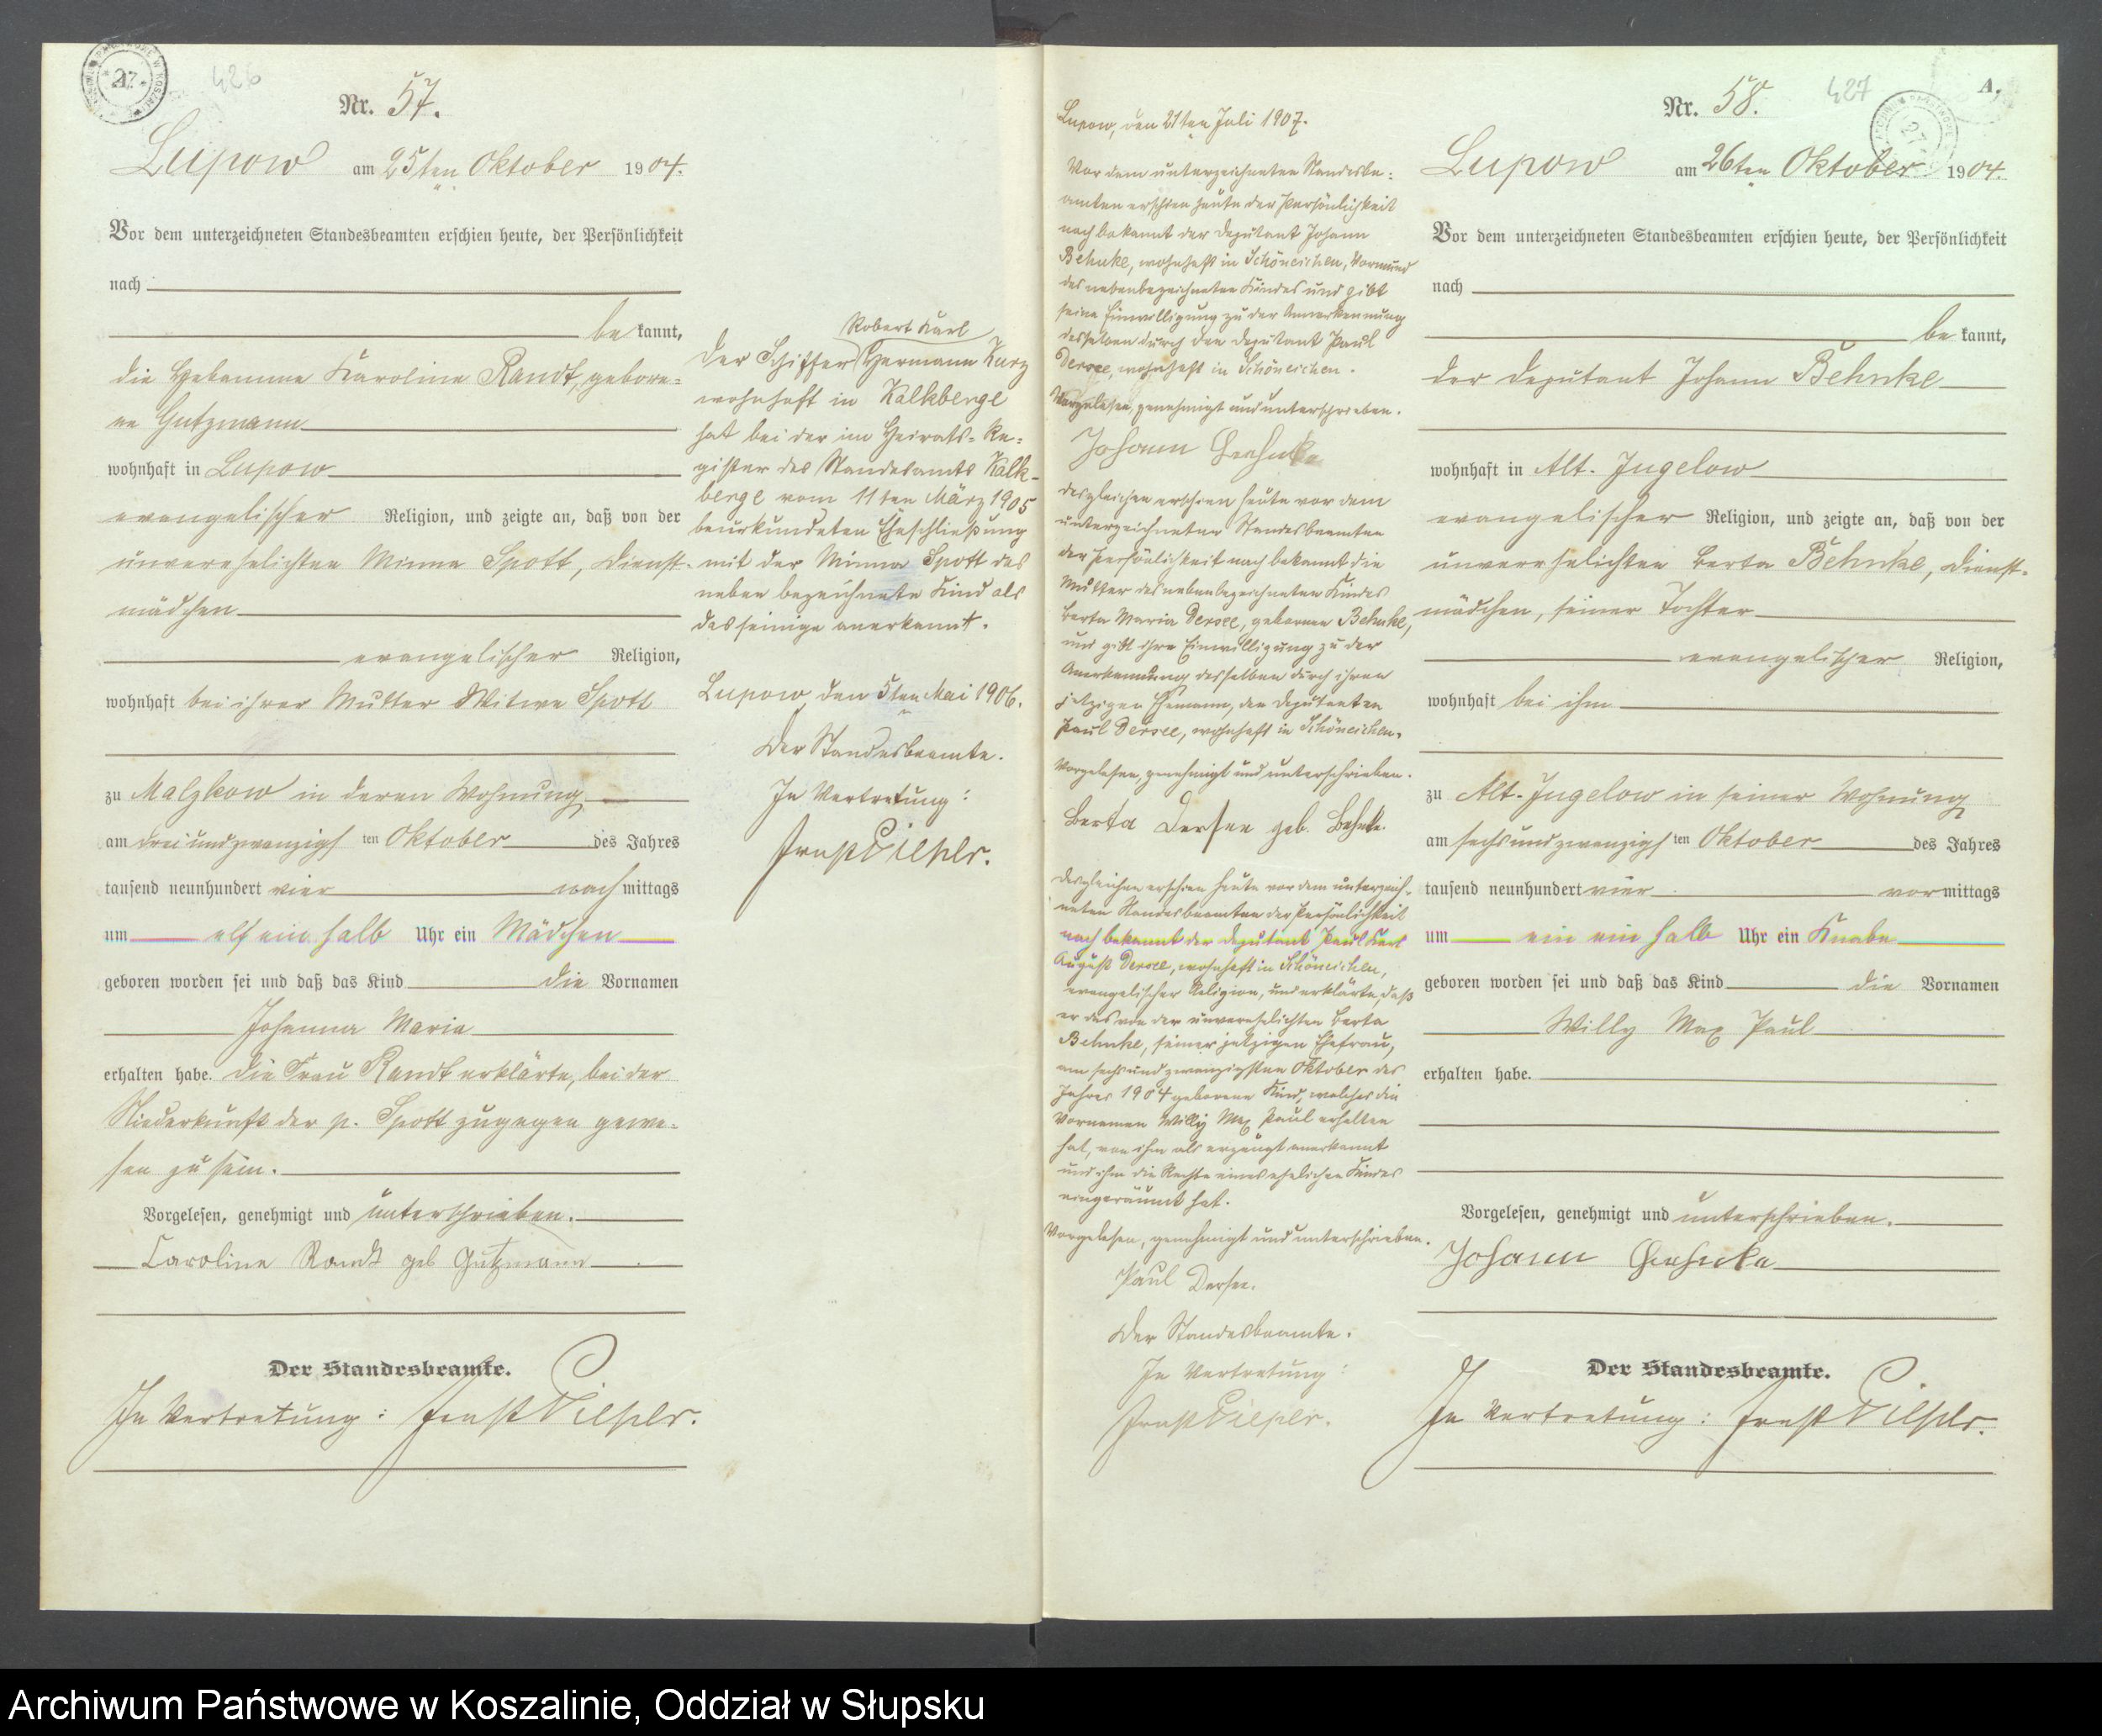 426
Nr. 57.
Lupow am 25ten Oktober 1904.
Vor dem unterzeichneten Standesbeamten erschien heute, der Persönlichkeit
nach
be kannt,
die Hebamme Karoline Randt, gebore=
ne Gutzmann
wohnhaft in Lupow
evangelischer Religion, und zeigte an, daß von der
unverehelichten Minna Spott, Dienst-
mädchen
evangelischer Religion,
wohnhaft bei ihrer Mutter Witwe Spott
zu Malzkow in deren Wohnung
am dreiundzwanzigs ten Oktober des Jahres
tausend neunhundert vier nach mittags
um elf ein halb Uhr ein Mädchen
geboren worden sei und daß das Kind die Vornamen
Johanna Maria
erhalten habe. Die Frau Randt erklärte, bei der
Niederkunft der p. Spott zugegen gewe-
sen zu sein.
Vorgelesen, genehmigt und unterschrieben.
Caroline Randt geb Gutzmann
Der Standesbeamte.
In Vertretung: Ernst Pieper.
Robert Karl
Der Schiffer Hermann Kurz
wohnhaft in Kalkberge
hat bei der im Heirats-Re=
gister des Standesamts Kalk-
berge vom 11ten März 1905
beurkundeten Eheschließung
mit der Minna Spott das
neben bezeichnete Kind als
das seinige anerkannt.
Lupow, den 5ten Mai 1906.
Der Standesbeamte.
In Vertretung:
Ernst Pieper.
Lupow, den 21ten Juli 1907.
Vor dem unterzeichneten Standesbe=
amten erschien heute der Persönlichkeit
nach bekannt der Deputant Johann
Behnke, wohnhaft in Schöneichen, Vormund
des nebenbezeichneten Kindes und gibt
seine Einwilligung zu der Anerkennung
desselben durch den Deputant Paul
Dersee, wohnhaft in Schöneichen.
Vorgelesen, genehmigt und unterschrieben.
Johann Behnke
Desgleichen erschien heute vor dem
unterzeichneten Standesbeamten
der Persönlichkeit nach bekannt die
Mutter des nebenbezeichneten Kindes
Berta Maria Dersee, geborene Behnke,
und gibt ihre Einwilligung zu der
Anerkennung desselben durch ihren
jetzigen Ehemann, den Deputanten
Paul Dersee, wohnhaft in Schöneichen.
Vorgelesen, genehmigt und unterschrieben.
Berta Dersee geb. Behnke.
Desgleichen erschien heute vor dem unterzeich-
neten Standesbeamten der Persönlichkeit
nach bekannt der Deputant Paul Karl
August Dersee, wohnhaft in Schöneichen,
evangelischer Religion, und erklärte, daß
er das von der unverehelichten Berta
Behnke, seiner jetzigen Ehefrau,
am sechsundzwanzigsten Oktober des
Jahres 1904 geborene Kind, welches die
Vornamen Willy Max Paul erhalten
hat, von ihm als erzeugt anerkannt
und ihm die Rechte eines ehelichen Kindes
eingeräumt hat.
Vorgelesen, genehmigt und unterschrieben.
Paul Dersee.
Der Standesbeamte.
In Vertretung:
Ernst Pieper.
427
A.
Nr. 58.
Lupow am 26ten Oktober 1904.
Vor dem unterzeichneten Standesbeamten erschien heute, der Persönlichkeit
nach
be kannt,
der Deputant Johann Behnke
wohnhaft in Alt-Jugelow
evangelischer Religion, und zeigte an, daß von der
unverehelichten Berta Behnke, Dienst-
mädchen, seiner Tochter
evangelischer Religion,
wohnhaft bei ihm
zu Alt-Jugelow in seiner Wohnung
am sechsundzwanzigs ten Oktober des Jahres
tausend neunhundert vier vor mittags
um ein ein halb Uhr ein Knabe
geboren worden sei und daß das Kind die Vornamen
Willy Max Paul
erhalten habe.
Vorgelesen, genehmigt und unterschrieben.
Johann Behnke
Der Standesbeamte.
In Vertretung: Ernst Pieper.
Archiwum Państwowe w Koszalinie, Oddział w Słupsku